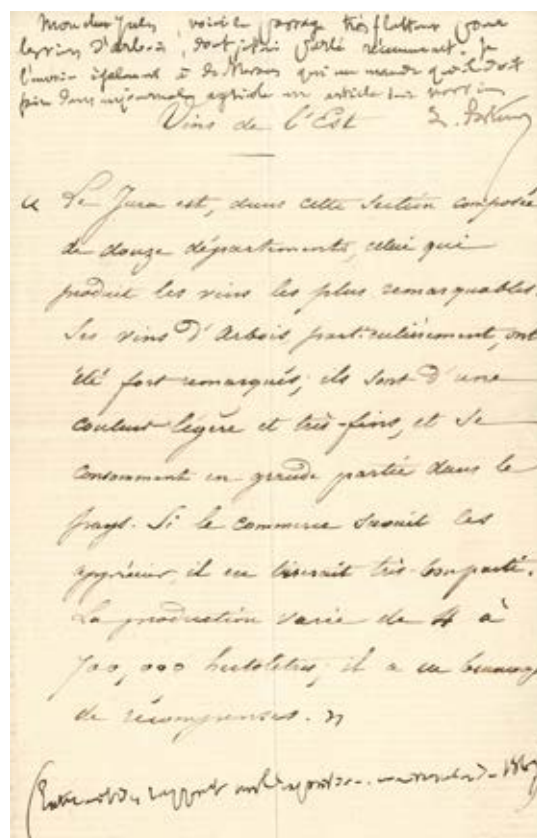 Mon cher Jules, voici le passage très flatteur pour
les vins d'arbois, dont je t'ai parlé récemment. Je
l'envoie également à de qui me mande qu'il doit
faire dans un journal agricole un article sur nos vins
Vins de l'Est L.
« Le Jura est, dans cette Section composée
de douze départements, celui qui
produit les vins les plus remarquables.
Ses vins d'Arbois particulièrement, ont
été fort remarqués; ils sont d'une
couleur légère et très-fins, et se
consomment en grande partie dans le
pays. Si le commerce savait les
apprécier, il en ferait très-bon parti.
La production varie de 4 à
700,000 hectolitres; il a eu beaucoup
de récompenses. »
(Extrait du rapport sur l'exposition